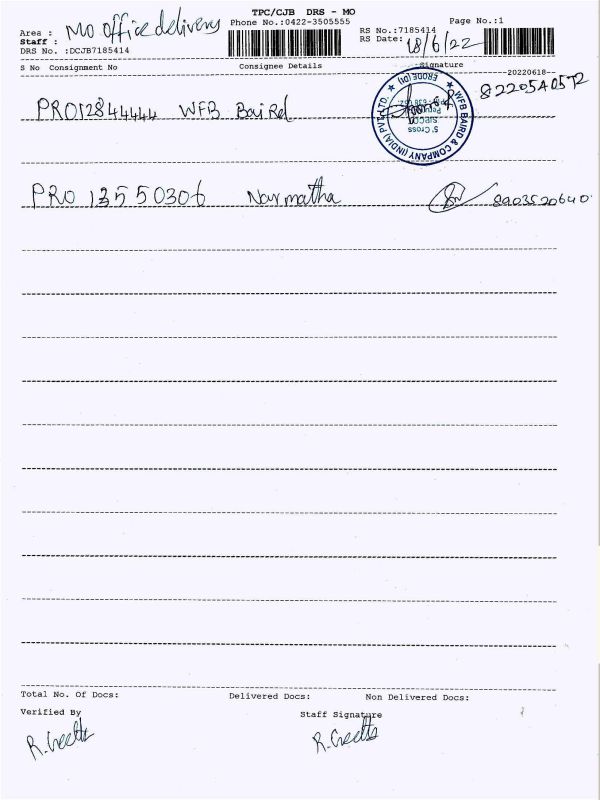 TPC/CJB DRS - MO
Area : MO office delivery Phone No.:0422-3505555 Page No.:1
Staff : RS No.:7185414
DRS No. :DCJB7185414 RS Date: 18/6/22
S No Consignment No Consignee Details Signature
-20220618-
PRO12844444 WFB Baird
WFB BAIRD & COMPANY (INDIA) PVT LTD. ★ ERODE (Dt) ★
5th Cross
SIPCOT
PRO 13550306 Narmatha 8903520640
Total No. Of Docs: Delivered Docs: Non Delivered Docs:
Verified By Staff Signature
R. Geetha R. Geetha